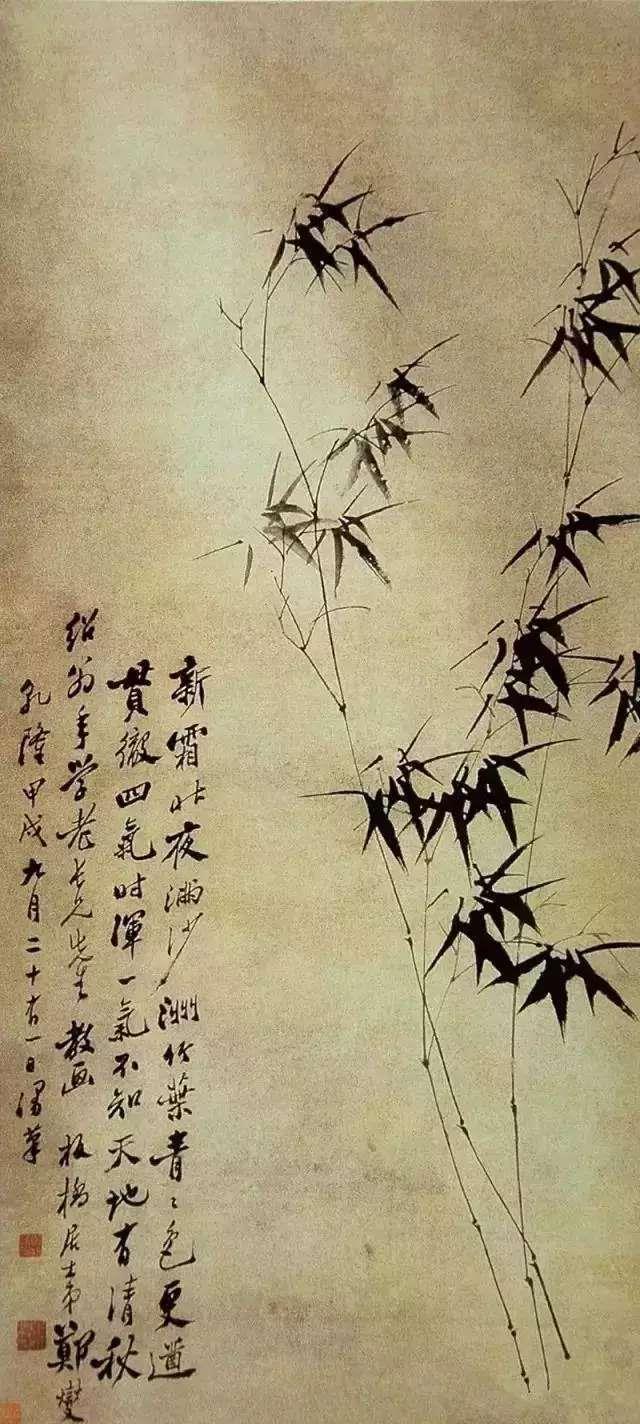 新霜昨夜滿沙洲竹葉青〻色更遒
貫徹四氣时渾一氣不知天地有清秋
翁年学老长兄先生 教画 板橋居士弟鄭燮
乾隆甲戌九月二十有一日